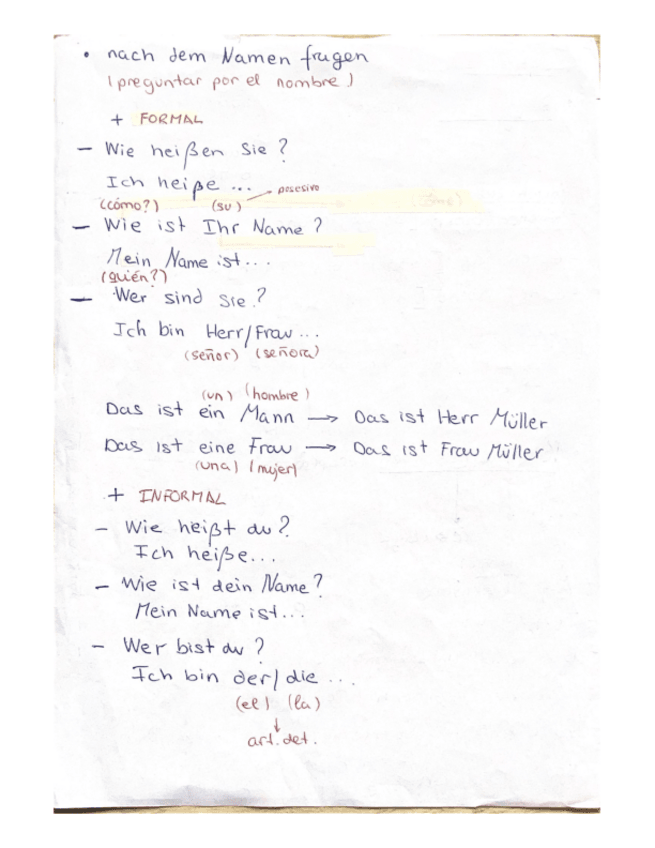 • nach dem Namen fragen
(preguntar por el nombre)
+ FORMAL
- Wie heißen Sie?
Ich heiße ... → posesivo
(cómo?) (su)
- Wie ist Ihr Name?
Mein Name ist...
(quién?)
- Wer sind Sie?
Ich bin Herr/Frau...
(señor) (señora)
(un) (hombre)
Das ist ein Mann → Das ist Herr Müller
Das ist eine Frau → Das ist Frau Müller
(una) (mujer)
+ INFORMAL
- Wie heißt du?
Ich heiße...
- Wie ist dein Name?
Mein Name ist...
- Wer bist du?
Ich bin der/die ...
(el) (la)
↓
art. det.